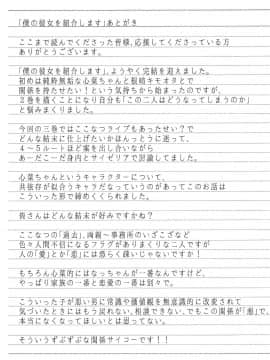 「僕の彼女を紹介します」あとがき
ここまで読んでくださった皆様、応援してくださっている方
ありがとうございます。
「僕の彼女を紹介します」、ようやく完結を迎えました。
初めは純粋無垢な心菜ちゃんと眼鏡キモオタとで
関係を持たせたい！という気持ちから始まったのですが、
2巻を描くことになり自分も「この二人はどうなってしまうのか」
と悩みまくりました。
今回の三巻ではここなつライブもあったせい？で
どんな結末に仕上げたいかほんっとうに迷って、
4～5ルートほど案を出し合いながら
あーだこーだ身内とサイゼリアで討論してました。
心菜ちゃんというキャラクターについて、
共依存が似合うキャラだなっていうのがあってこのお話は
こういった形で締めくくられました。
皆さんはどんな結末が好みですかね？
ここなつの「過去」、両親～事務所のいざこざなど
色々人間不信になるフラグがありまくりな二人ですが
人の「愛」とか「恋」には揺らぐ疎いじゃないですか！
もちろん心菜的にはなっちゃんが一番なんですけど、
やっぱり家族の一番と恋愛の一番は別々で。
こういった子が悪い男に常識や価値観を無意識的に改変されて
気づいたときにはもう戻れない、相談できない、でもこの関係が「悪」で、
本当になくなってほしいとは思ってない。
そういうずぶずぶな関係サイコーです！！